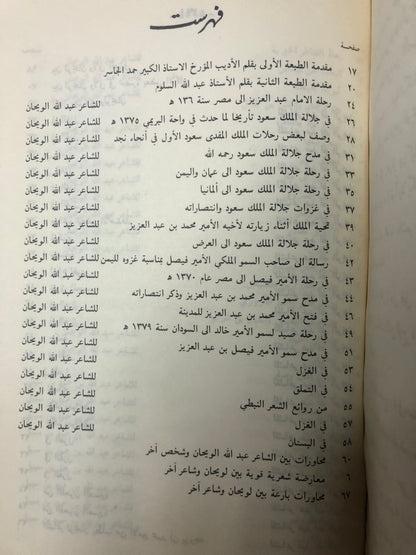 فهرست
صفحة
١٧ مقدمة الطبعة الأولى بقلم الأديب المؤرخ الاستاذ الكبير حمد الجاسر
٢٠ مقدمة الطبعة الثانية بقلم الأستاذ عبد الله السلوم
٢٤ رحلة الامام عبد العزيز الى مصر سنة ١٣٦ ه للشاعر عبد الله الويحان
٢٦ في جلالة الملك سعود تأريخا لما حدث في واحة البريمي ١٣٧٥ ه للشاعر عبد الله الويحان
٢٨ وصف لبعض رحلات الملك المفدى سعود الأول في أنحاء نجد للشاعر عبد الله الويحان
٣١ في مدح جلالة الملك سعود رحمه الله للشاعر عبد الله الويحان
٣٣ في رحلة جلالة الملك سعود الى عمان واليمن للشاعر عبد الله الويحان
٣٥ في رحلة جلالة الملك سعود الى ألمانيا للشاعر عبد الله الويحان
٣٧ في غزوات جلالة الملك سعود وانتصاراته للشاعر عبد الله الويحان
٣٩ تحية الملك أثناء زيارته لأخيه الأمير محمد بن عبد العزيز للشاعر عبد الله الويحان
٤٠ في رحلة جلالة الملك سعود الى العرض للشاعر عبد الله الويحان
٤٢ رسالة الى صاحب السمو الملكي الأمير فيصل بمناسبة غزوه لليمن للشاعر عبد الله الويحان
٤٣ في رحلة الأمير فيصل الى مصر عام ١٣٧٠ ه للشاعر عبد الله الويحان
٤٤ في مدح سمو الأمير محمد بن عبد العزيز وذكر انتصاراته للشاعر عبد الله الويحان
٤٦ في فتح الأمير محمد بن عبد العزيز للمدينة للشاعر عبد الله الويحان
٤٩ رحلة صيد لسمو الأمير خالد الى السودان سنة ١٣٧٩ ه للشاعر عبد الله الويحان
٥١ في مدح سمو الأمير فيصل بن عبد العزيز للشاعر عبد الله الويحان
٥٣ في الغزل للشاعر عبد الله الويحان
٥٤ في التملق للشاعر عبد الله الويحان
٥٥ من روائع الشعر النبطي للشاعر عبد الله الويحان
٥٧ في الغزل للشاعر عبد الله الويحان
٥٨ في البستان للشاعر عبد الله الويحان
٦٠ محاورات بين الشاعر عبد الله الويحان وشخص أخر
٦ معارضة شعرية قوية بين لويحان وشاعر أخر
٦٧ محاورات بارعة بين لويحان وشاعر أخر